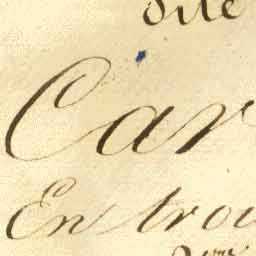 dite
Car
En trou